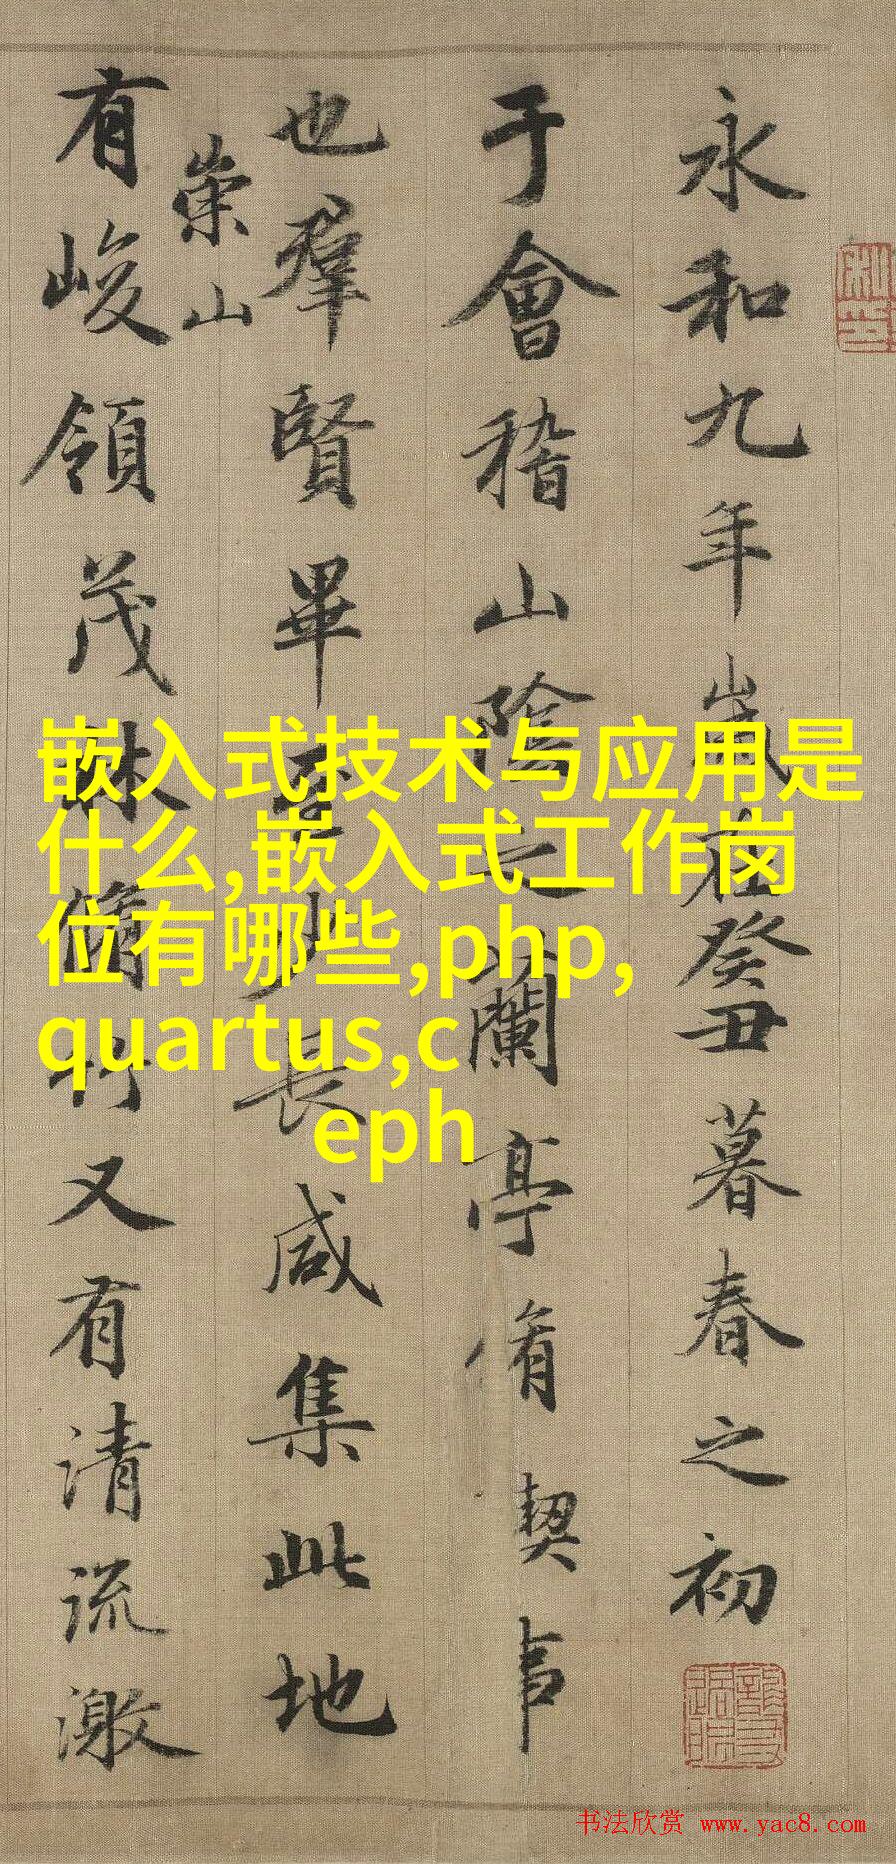 永和九年歲在癸丑暮春之初
于會稽山陰之蘭亭脩契事
也羣賢畢至少長咸集此地
崇山
有峻領茂林脩竹又有清流激
嵌入式技术与应用是
什么,嵌入式工作岗
位有哪些,php,
quartus,c
eph
书法欣赏 www.yac8.com